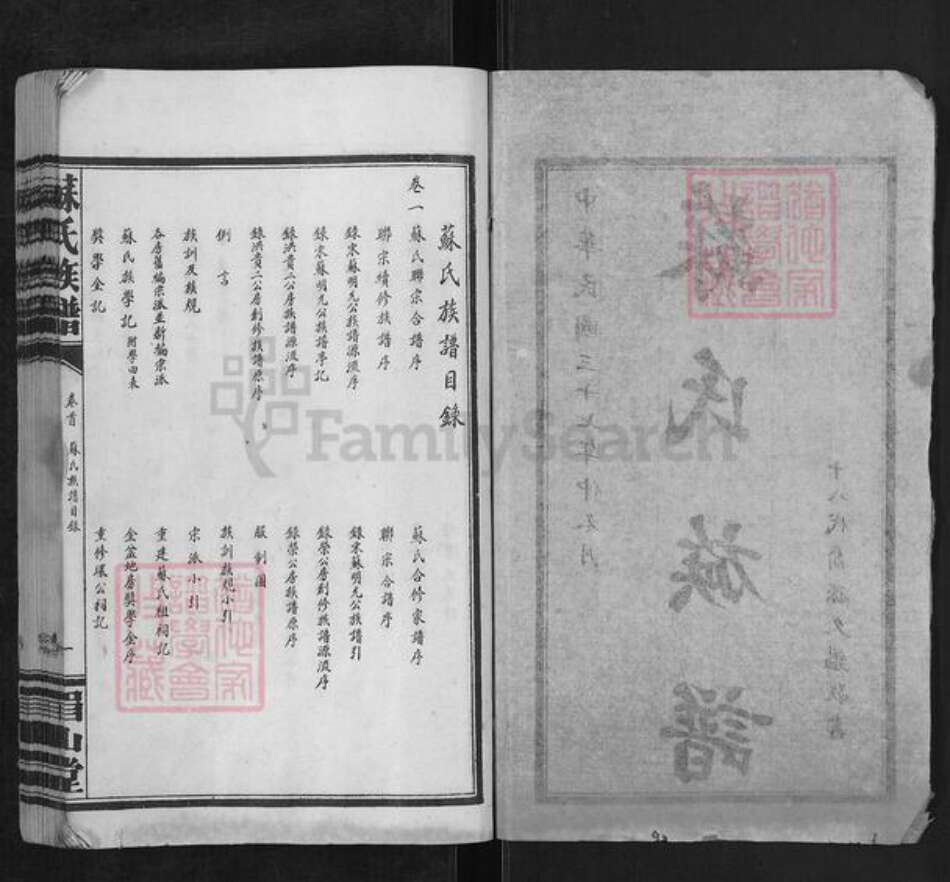 蘇氏族譜
中華民國三十七年仲冬月
蘇氏族譜目錄
卷一
蘇氏聯宗合譜序
蘇氏合修家譜序
聯宗續修族譜序
聯宗合譜序
錄宋蘇明允公族譜源流序
錄宋蘇明允公族譜引
錄宋蘇明允公族譜亭記
錄榮公房創修族譜源流序
錄洪貴二公房族譜源流序
錄榮公居族譜原序
錄洪貴二公房創修族譜原序
服制圖
例言
族訓族規小引
族訓及族規
宗派小引
各房舊編宗派並新編宗派
重建蘇氏祖祠記
蘇氏族學記 附學田表
金盆地房獎學金序
獎學金記
重修環公祠記
蘇氏族譜
卷首
蘇氏族譜目錄
一
眉山堂
FamilySearch